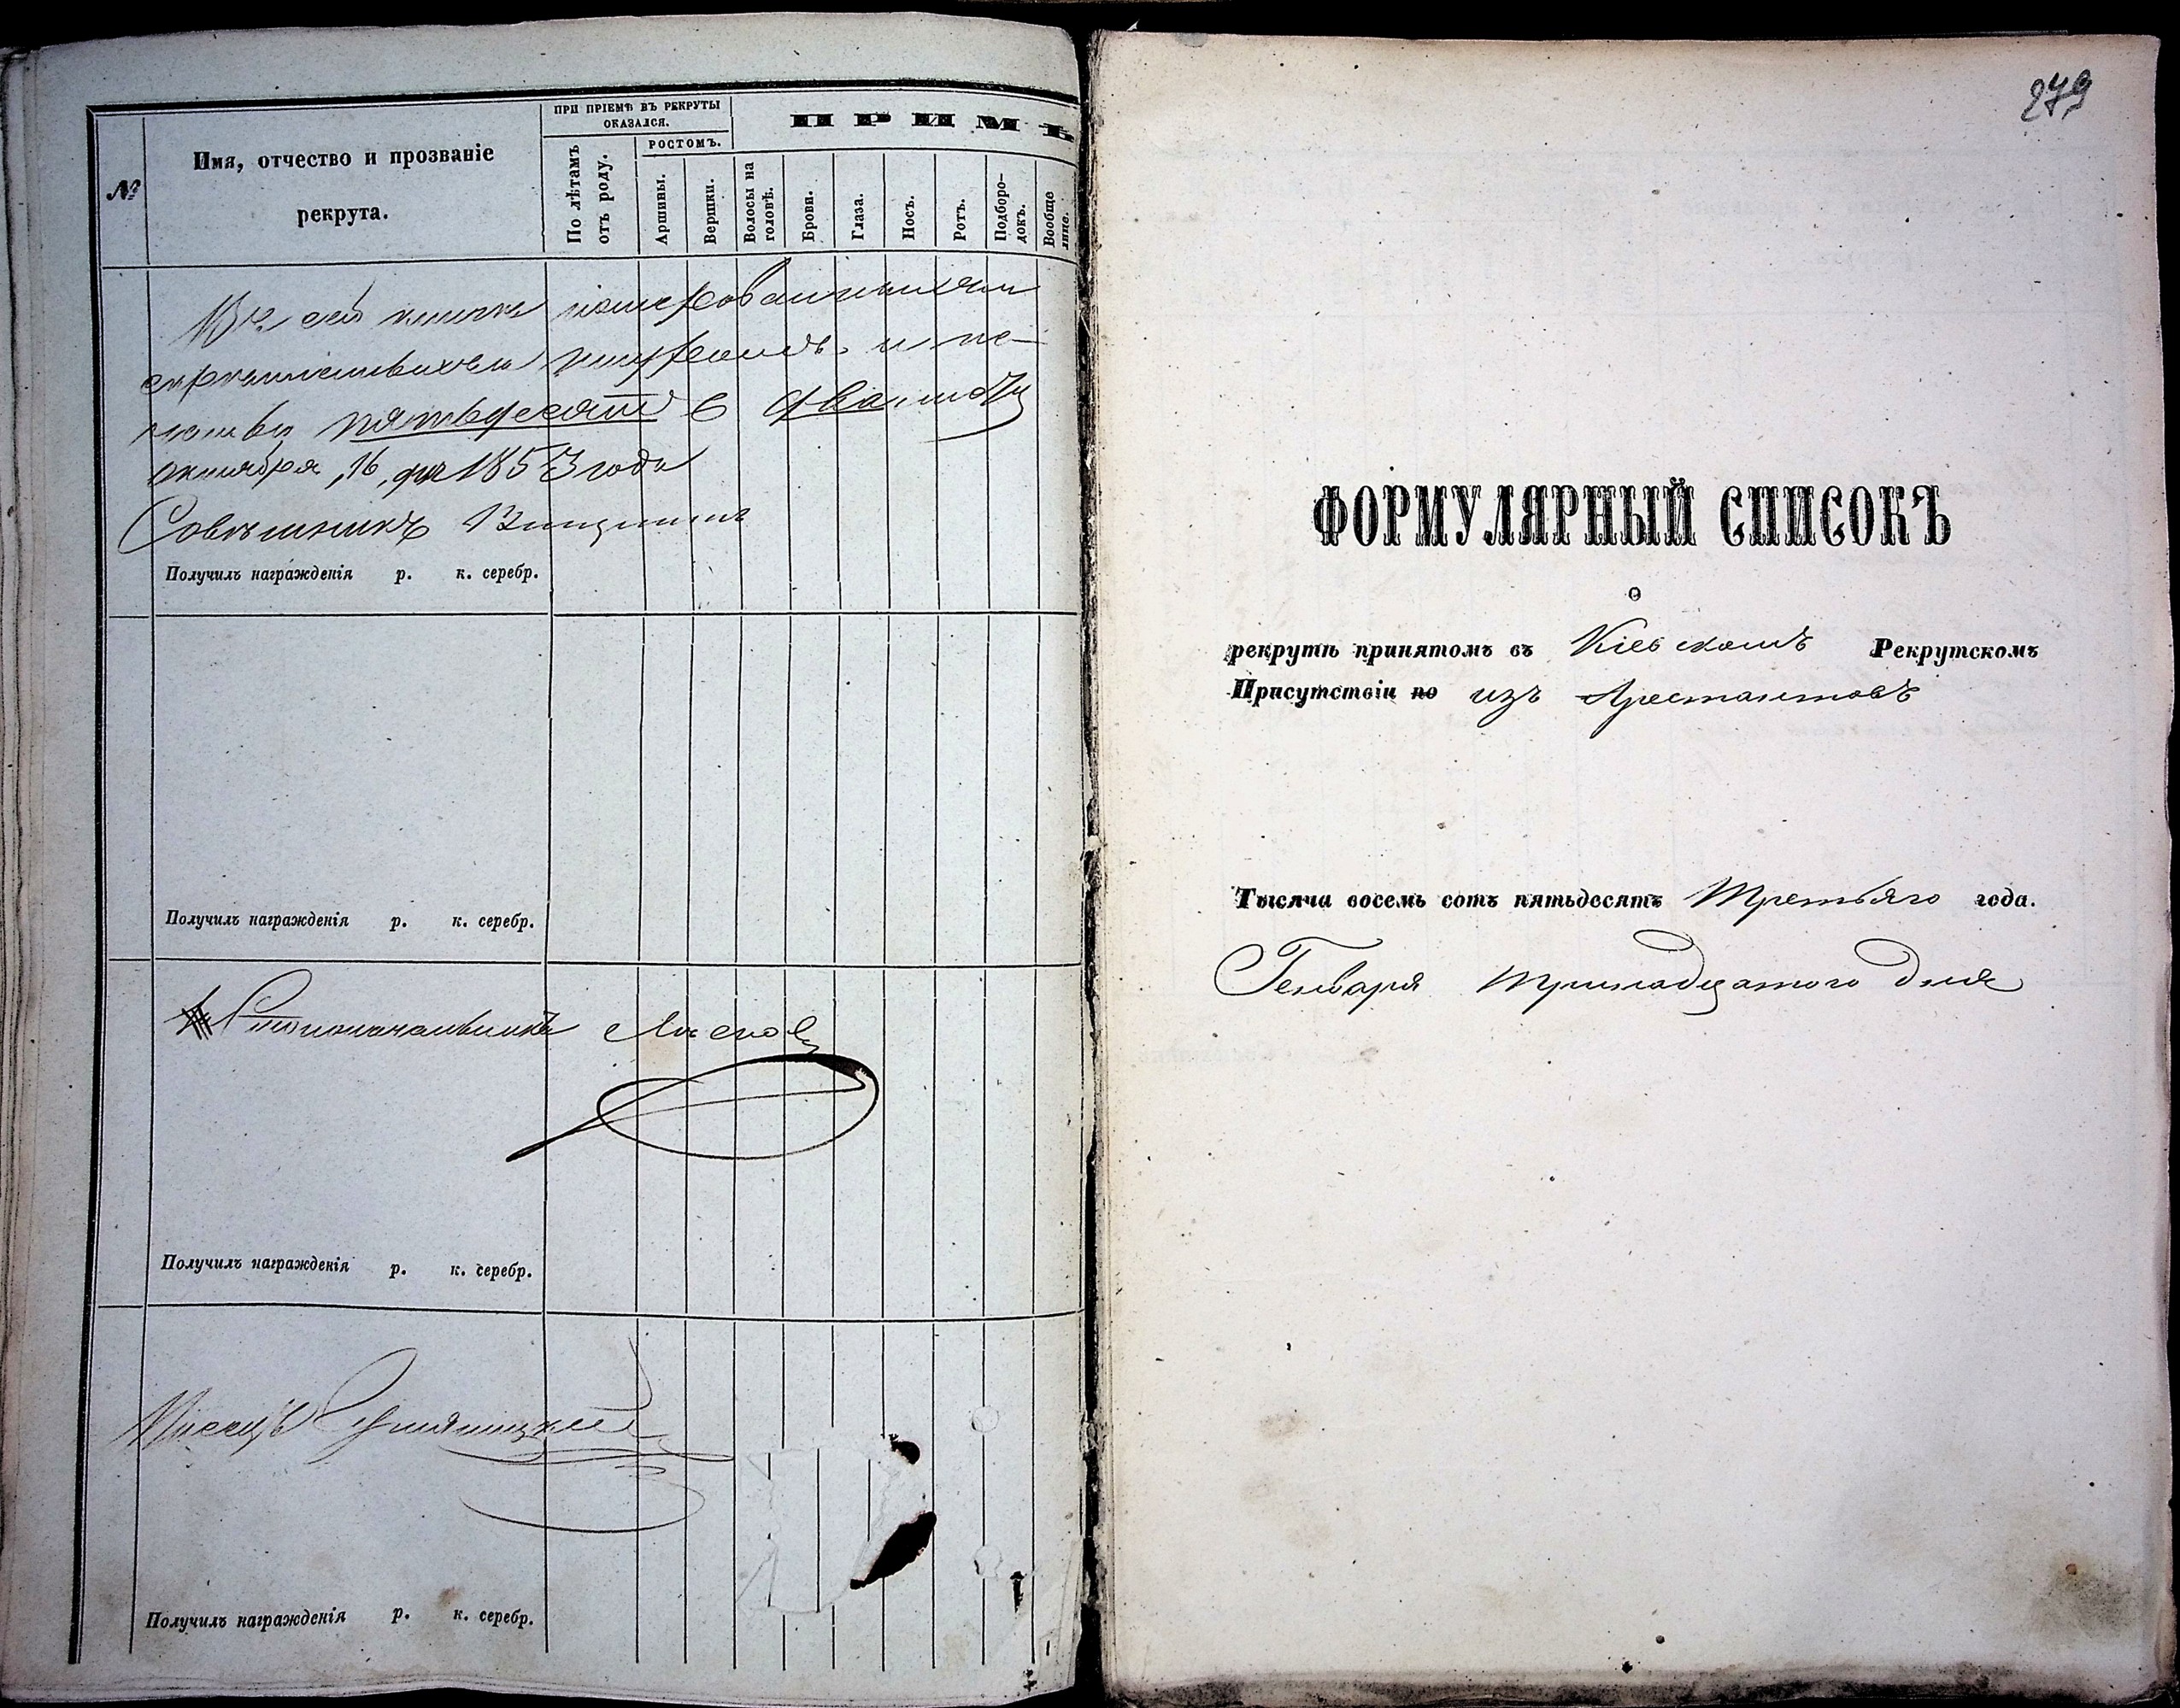 №
Имя, отчество и прозваніе
рекрута.
ПРИ ПРІЕМѢ ВЪ РЕКРУТЫ
ОКАЗАЛСЯ.
По лѣтамъ
отъ роду.
РОСТОМЪ.
Аршины.
Вершки.
ПРИМѢ
Волосы на
головѣ.
Брови.
Глаза.
Носъ.
Ротъ.
Подборо-
докъ.
Вообще
лице.
Въ сей книгѣ номерованныхъ
шнуромъ и пе-
чатью пятьдесятъ два листа
октября 16 дня 1853 года
Совѣтникъ
Получилъ награжденія р. к. серебр.
Получилъ награжденія р. к. серебр.
Столоначальникъ
Получилъ награжденія р. к. серебр.
Писецъ
Получилъ награжденія р. к. серебр.
279
ФОРМУЛЯРНЫЙ СПИСОКЪ
о
рекрутѣ принятомъ въ Кіевскомъ Рекрутскомъ
Присутствіи по изъ Арестантовъ
Тысяча восемь сотъ пятьдесятъ Третьяго года.
Генваря тринадцатого дня